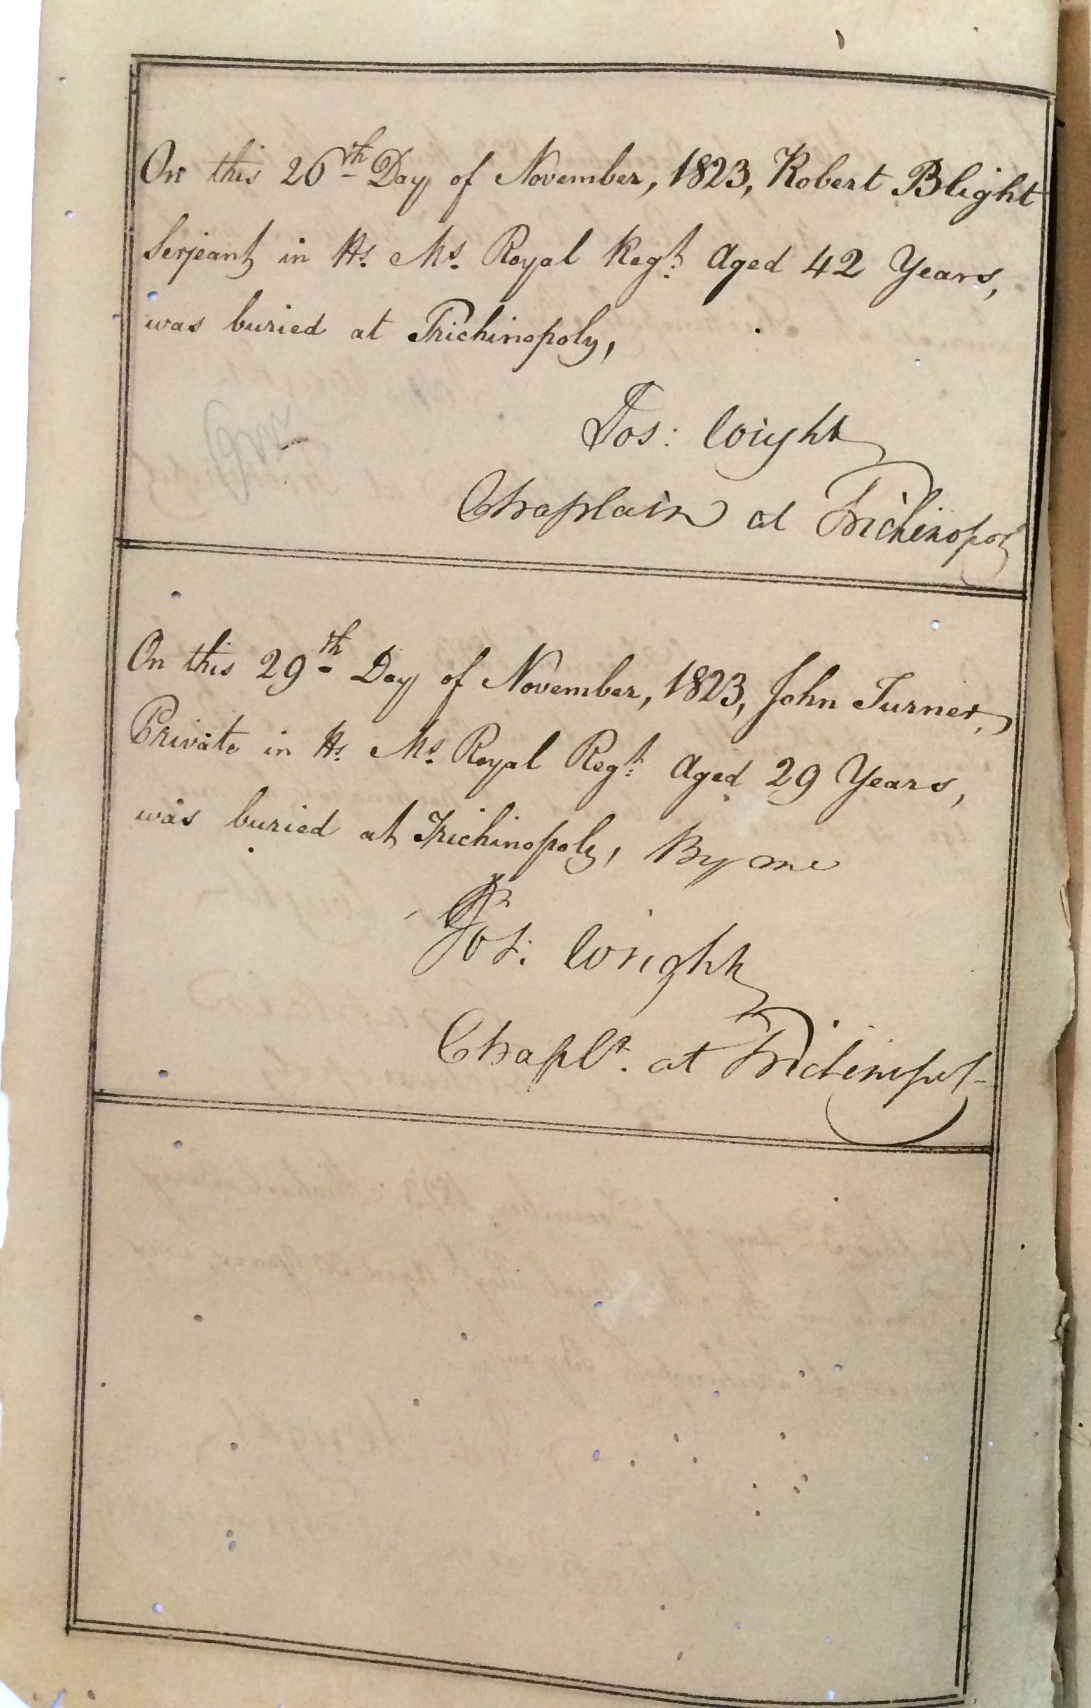 On this 26th Day of November, 1823, Robert Blight
Serjeant in Hs. Ms. Royal Regt. Aged 42 Years,
was buried at Trichinopoly,
Jos: Wright
Chaplain at Trichinopoly
On this 29th Day of November, 1823, John Turner,
Private in Hs. Ms. Royal Regt. Aged 29 Years,
was buried at Trichinopoly, By me
Jos: Wright
Chapln. at Trichinopoly